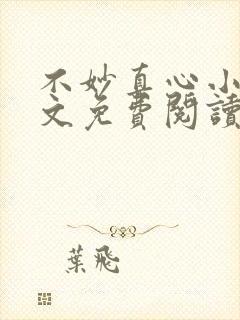 不妙真心小
文免費閱讀
葉飛